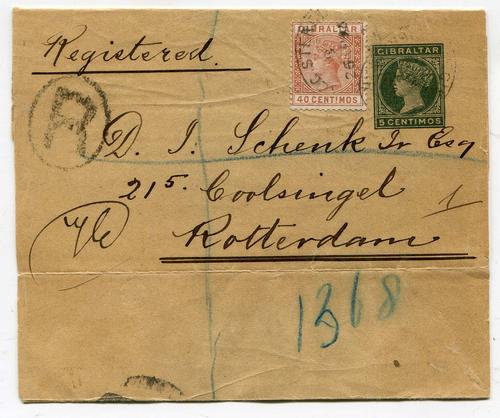 Registered.
GIBRALTAR
40 CENTIMOS
GIBRALTAR
5 CENTIMOS
R
D. J. Schenk Jr Esq
215. Coolsingel
1
Rotterdam
1368